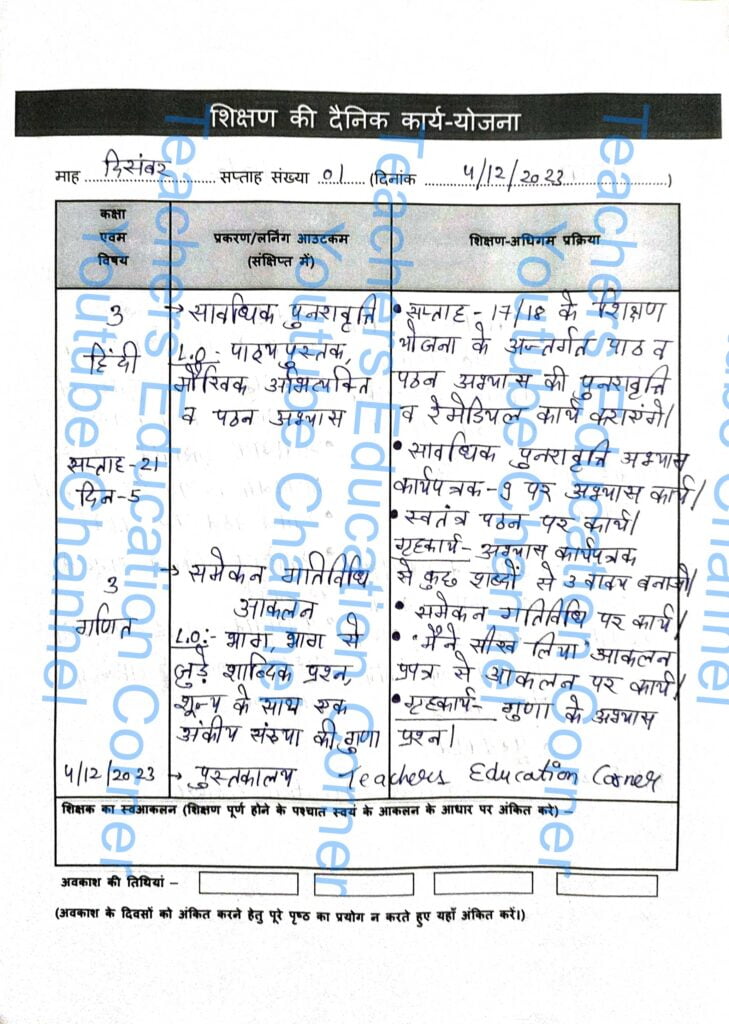 शिक्षण की दैनिक कार्य-योजना
माह दिसंबर सप्ताह संख्या 01 (दिनांक 4/12/2023)
कक्षा
एवम
विषय
प्रकरण/लर्निंग आउटकम
(संक्षिप्त में)
शिक्षण-अधिगम प्रक्रिया
3
हिंदी
सप्ताह-21
दिन-5
→ सावधिक पुनरावृत्ति
L.O:- पाठ्यपुस्तक,
मौखिक अभिव्यक्ति
व पठन अभ्यास
• सप्ताह - 17/18 के शिक्षण
योजना के अन्तर्गत पाठ व
पठन अभ्यास की पुनरावृत्ति
व रेमेडियल कार्य कराएंगे।
• सावधिक पुनरावृत्ति अभ्यास
कार्यपत्रक-9 पर अभ्यास कार्य।
• स्वतंत्र पठन पर कार्य।
गृहकार्य- अभ्यास कार्यपत्रक
से कुछ शब्दों से 3 वाक्य बनाओ।
3
गणित
→ समेकन गतिविधि
आकलन
L.O:- भाग, भाग से
जुड़े शाब्दिक प्रश्न,
शून्य के साथ एक
अंकीय संख्या की गुणा
• समेकन गतिविधि पर कार्य।
• "मैंने सीख लिया" आकलन
प्रपत्र से आकलन पर कार्य।
• गृहकार्य- गुणा के अभ्यास
प्रश्न।
4/12/2023 → पुस्तकालय Teachers Education Corner
शिक्षक का स्वआकलन (शिक्षण पूर्ण होने के पश्चात स्वयं के आकलन के आधार पर अंकित करे) –
अवकाश की तिथियां –
(अवकाश के दिवसों को अंकित करने हेतु पूरे पृष्ठ का प्रयोग न करते हुए यहाँ अंकित करें।)
Teachers Education Corner
Youtube Channel
Teachers Education Corner
Youtube Channel
Teachers Education Corner
Youtube Channel